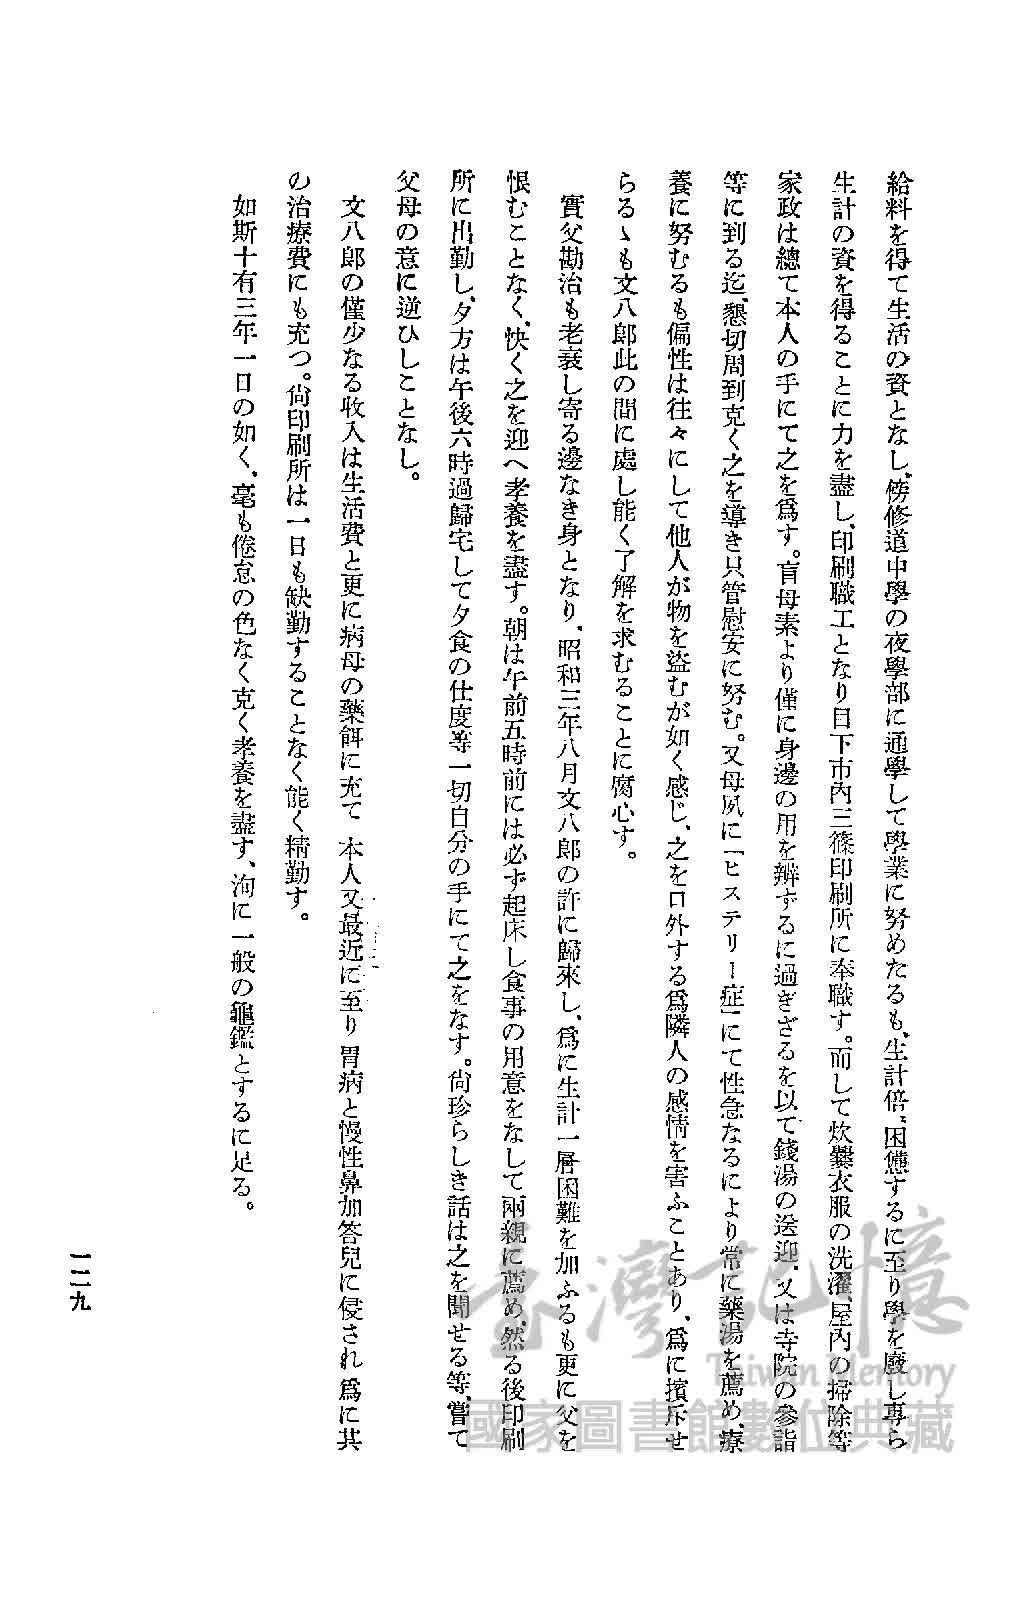 給料を得て生活の資となし、傍修道中學の夜學部に通學して學業に努めたるも、生計倍〻困憊するに至り學を廢し專ら
生計の資を得ることに力を盡し、印刷職工となり目下市內三篠印刷所に奉職す。而して炊爨衣服の洗濯、屋內の掃除等
家政は總て本人の手にて之を爲す。盲母素より僅に身邊の用を辨ずるに過ぎざるを以て錢湯の送迎、又は寺院の參詣
等に到る迄、懇切周到克く之を導き只管慰安に努む。又母夙に「ヒステリー症」にて性急なるにより常に藥湯を薦め、療
養に努むるも偏性は往々にして他人が物を盜むが如く感じ、之を口外する爲隣人の感情を害ふことあり、爲に擯斥せ
らるゝも文八郎此の間に處し能く了解を求むることに腐心す。
實父勘治も老衰し寄る邊なき身となり、昭和三年八月文八郎の許に歸來し、爲に生計一層困難を加ふるも更に父を
恨むことなく、快く之を迎へ孝養を盡す。朝は午前五時前には必ず起床し食事の用意をなして兩親に薦め、然る後印刷
所に出勤し、夕方は午後六時過歸宅して夕食の仕度等一切自分の手にて之をなす。尙珍らしき話は之を聞せる等、嘗て
父母の意に逆ひしことなし。
文八郎の僅少なる收入は生活費と更に病母の藥餌に充て 本人又最近に至り胃病と慢性鼻加答兒に侵され 爲に其
の治療費にも充つ。尙印刷所は一日も缺勤することなく能く精勤す。
如斯十有三年一日の如く、毫も倦怠の色なく克く孝養を盡す、洵に一般の龜鑑とするに足る。
一二九
臺灣記憶
Taiwan Memory
國家圖書館數位典藏